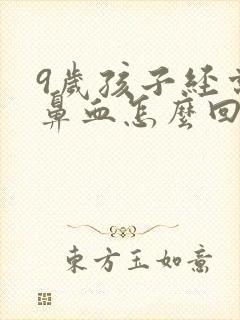 9歲孩子經
鼻血怎麼回
東方玉如意